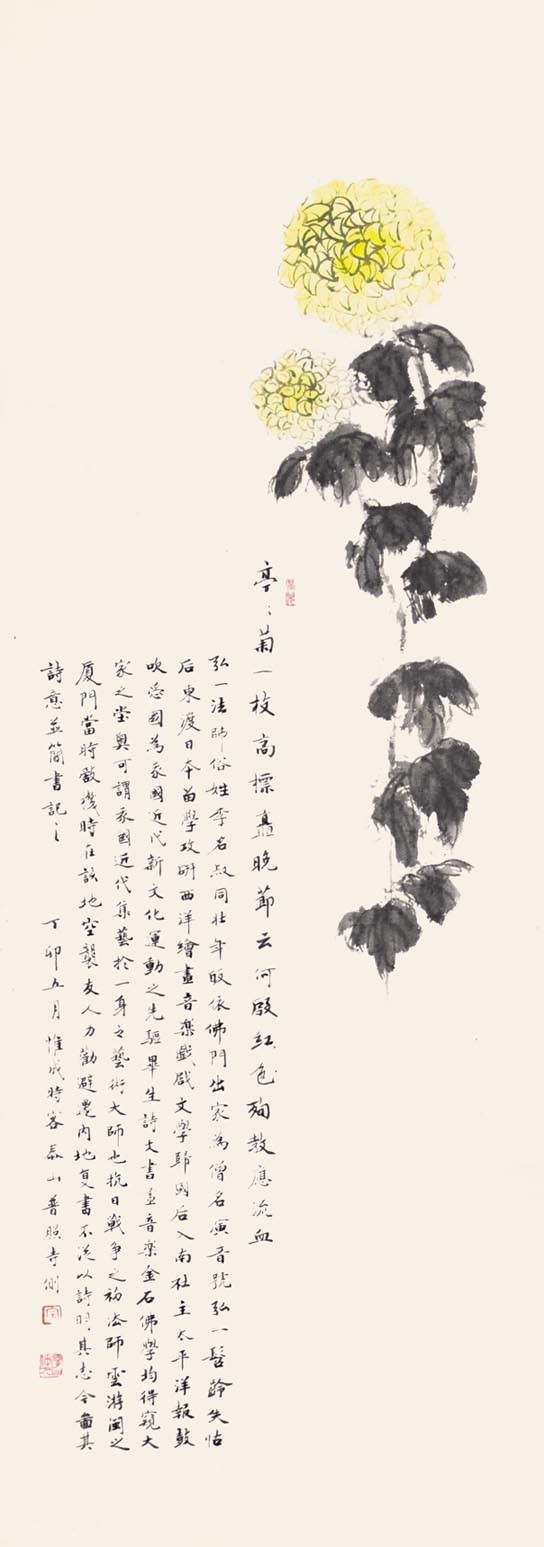 亭々菊一枝高標矗晚節云何殷紅色殉教應流血
弘一法師俗姓李名叔同壯年皈依佛門出家為僧名演音號弘一髫齡失怙
后東渡日本留學攻研西洋繪畫音樂戲劇文學歸國后入南社主太平洋報鼓
吹愛國為我國近代新文化運動之先驅畢生詩文書畫音樂金石佛學均得窺大
家之堂奧可謂我國近代集藝於一身之藝術大師也抗日戰爭之初法師雲游閩之
廈門當時敵機時在該地空襲友人力勸避邊內地复書不從以詩明其志今畫其
詩意並簡書記之
丁卯五月惟成時客泰山普照寺側